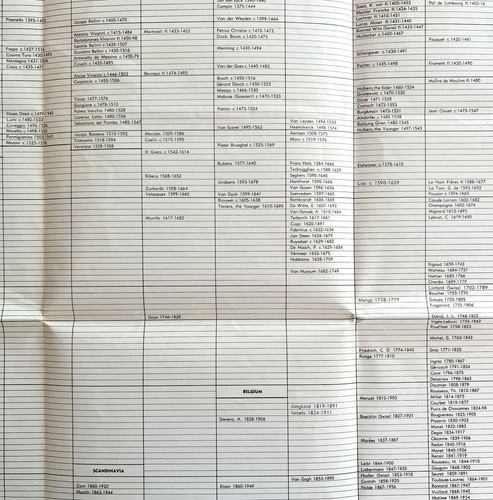 Pisanello 1395-1455
Foppa c.1427-1516
Cosimo Tura 1430-1495
Mantegna 1431-1506
Cossa c.1435-1477
Dosso Dossi c.1479-1542
Luini c.1480-1532
Correggio 1494-1534
Moretto c.1498-1555
Parmigianino 1503-1540
Moroni c.1525-1578
Jacopo Bellini c.1400-1470
Antonio Vivarini c.1415-1484
Bartolommeo Vivarini fl.1450-98
Gentile Bellini c.1429-1507
Giovanni Bellini c.1430-1516
Antonello da Messina c.1430-79
Crivelli c.1435-1495
Alvise Vivarini c.1446-1502
Carpaccio c.1455-1526
Titian 1477-1576
Giorgione c.1478-1510
Palma Vecchio 1480-1528
Lorenzo Lotto 1480-1556
Sebastiano del Piombo 1485-1547
Jacopo Bassano 1510-1592
Tintoretto 1518-1594
Veronese 1528-1588
SCANDINAVIA
Zorn 1860-1920
Munch 1863-1944
Martorell fl.1433-1453
Bermejo fl.1474-1495
Morales 1509-1586
Coello c.1515-1590
El Greco c.1542-1614
Ribera 1588-1652
Zurbarán 1598-1664
Velasquez 1599-1660
Murillo 1617-1682
Goya 1746-1828
Campin 1375-1444
Van der Weyden c.1399-1464
Petrus Christus c.1410-1473
Dirck Bouts c.1420-1475
Memlinc c.1430-1494
Van der Goes c.1440-1482
Bosch c.1450-1516
Gerard David c.1450-1523
Massys c.1466-1530
Mabuse (Gossaert) c.1470-1533
Patinir c.1475-1524
Van Scorel 1495-1562
Pieter Brueghel c.1525-1569
Rubens 1577-1640
Jordaens 1593-1678
Van Dyck 1599-1641
Brouwer c.1605-1638
Teniers, the Younger 1610-1690
BELGIUM
Stevens, A. 1828-1906
Ensor 1860-1949
Van Leyden 1494-1533
Heemskerck 1498-1574
Aertsen 1508-1575
Moro c.1519-1576
Frans Hals 1584-1666
Terbrugghen c.1588-1629
Seghers 1590-1640
Honthorst 1590-1656
Van Goyen 1596-1656
Saenredam 1597-1665
Rembrandt 1606-1669
De Witte, E. 1607-1692
Van Ostade, A. 1610-1684
Terborch 1617-1681
Cuyp 1620-1691
Fabritius c.1622-1654
Jan Steen 1626-1679
Ruysdael c.1629-1682
De Hooch, P. c.1629-1684
Vermeer 1632-1675
Hobbema 1638-1709
Van Huysum 1682-1749
Jongkind 1819-1891
Israels 1824-1911
Van Gogh 1853-1890
Soest, K. von fl.1403-1422
Meister Francke fl.1424-1435
Lochner fl.1410-1451
Lucas Moser fl.1431-1440
Konrad Witz (Swiss) fl.1433-1447
Multscher c.1400-1467
Schongauer c.1430-1491
Pacher c.1435-1498
Holbein, the Elder 1460-1524
Grünewald c.1470-1530
Dürer 1471-1528
Cranach 1472-1553
Burgkmair 1473-1531
Altdorfer c.1480-1538
Baldung Grien 1480-1545
Holbein, the Younger 1497-1543
Elsheimer c.1578-1610
Liss c.1590-1629
Mengs 1728-1779
Friedrich, C. D. 1774-1840
Runge 1777-1810
Menzel 1815-1905
Boecklin (Swiss) 1827-1901
Marées 1837-1887
Leibl 1844-1900
Liebermann 1847-1935
Hodler (Swiss) 1853-1918
Corinth 1858-1925
Nolde 1867-1956
Pol de Limbourg fl.1402-16
Fouquet c.1420-1481
Froment fl.1450-1490
Moulins de Moulins fl.1480
Jean Clouet c.1475-1547
Le Nain Frères fl.1588-1677
La Tour, G. de 1593-1652
Poussin c.1594-1665
Claude Lorrain 1600-1682
Champaigne 1602-1674
Mignard 1612-1695
Lebrun, C. 1619-1690
Rigaud 1659-1743
Watteau 1684-1721
Nattier 1685-1766
Chardin 1699-1779
Liotard (Swiss) 1702-1789
Boucher 1703-1770
Greuze 1725-1805
Fragonard 1732-1806
David, J. L. 1748-1825
Vigée-Lebrun 1755-1842
Prud'hon 1758-1823
Michel, G. 1763-1843
Gros 1771-1835
Ingres 1780-1867
Géricault 1791-1824
Corot 1796-1875
Delacroix 1798-1863
Daumier 1808-1879
Rousseau, Th. 1812-1867
Millet 1814-1875
Courbet 1819-1877
Puvis de Chavannes 1824-98
Bouguereau 1825-1905
Pissarro 1830-1903
Manet 1832-1883
Degas 1834-1917
Cézanne 1839-1906
Redon 1840-1916
Monet 1840-1926
Renoir 1841-1919
Rousseau, H. 1844-1910
Gauguin 1848-1903
Seurat 1859-1891
Toulouse-Lautrec 1864-1901
Bonnard 1867-1947
Vuillard 1868-1940
Matisse 1869-1954